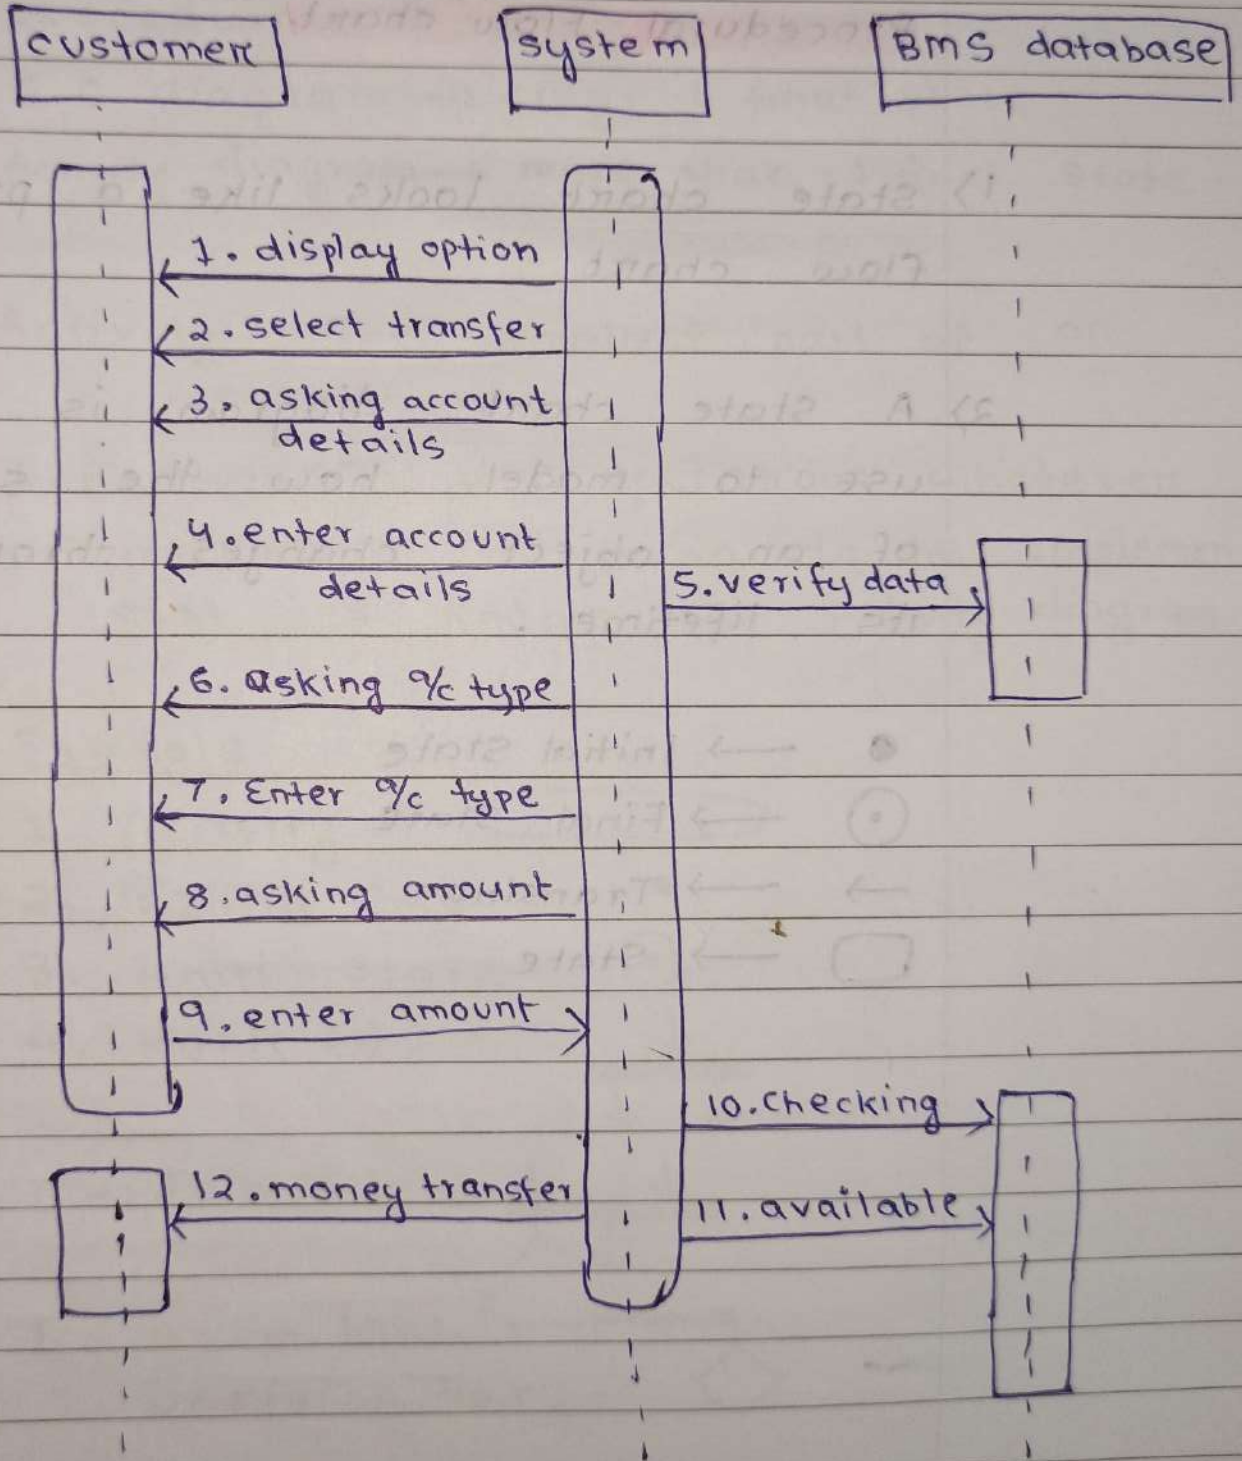 customer
system
BMS database
1. display option
2. select transfer
3. asking account
details
4. enter account
details
5. verify data
6. asking a/c type
7. Enter a/c type
8. asking amount
9. enter amount
10. checking
11. available
12. money transfer